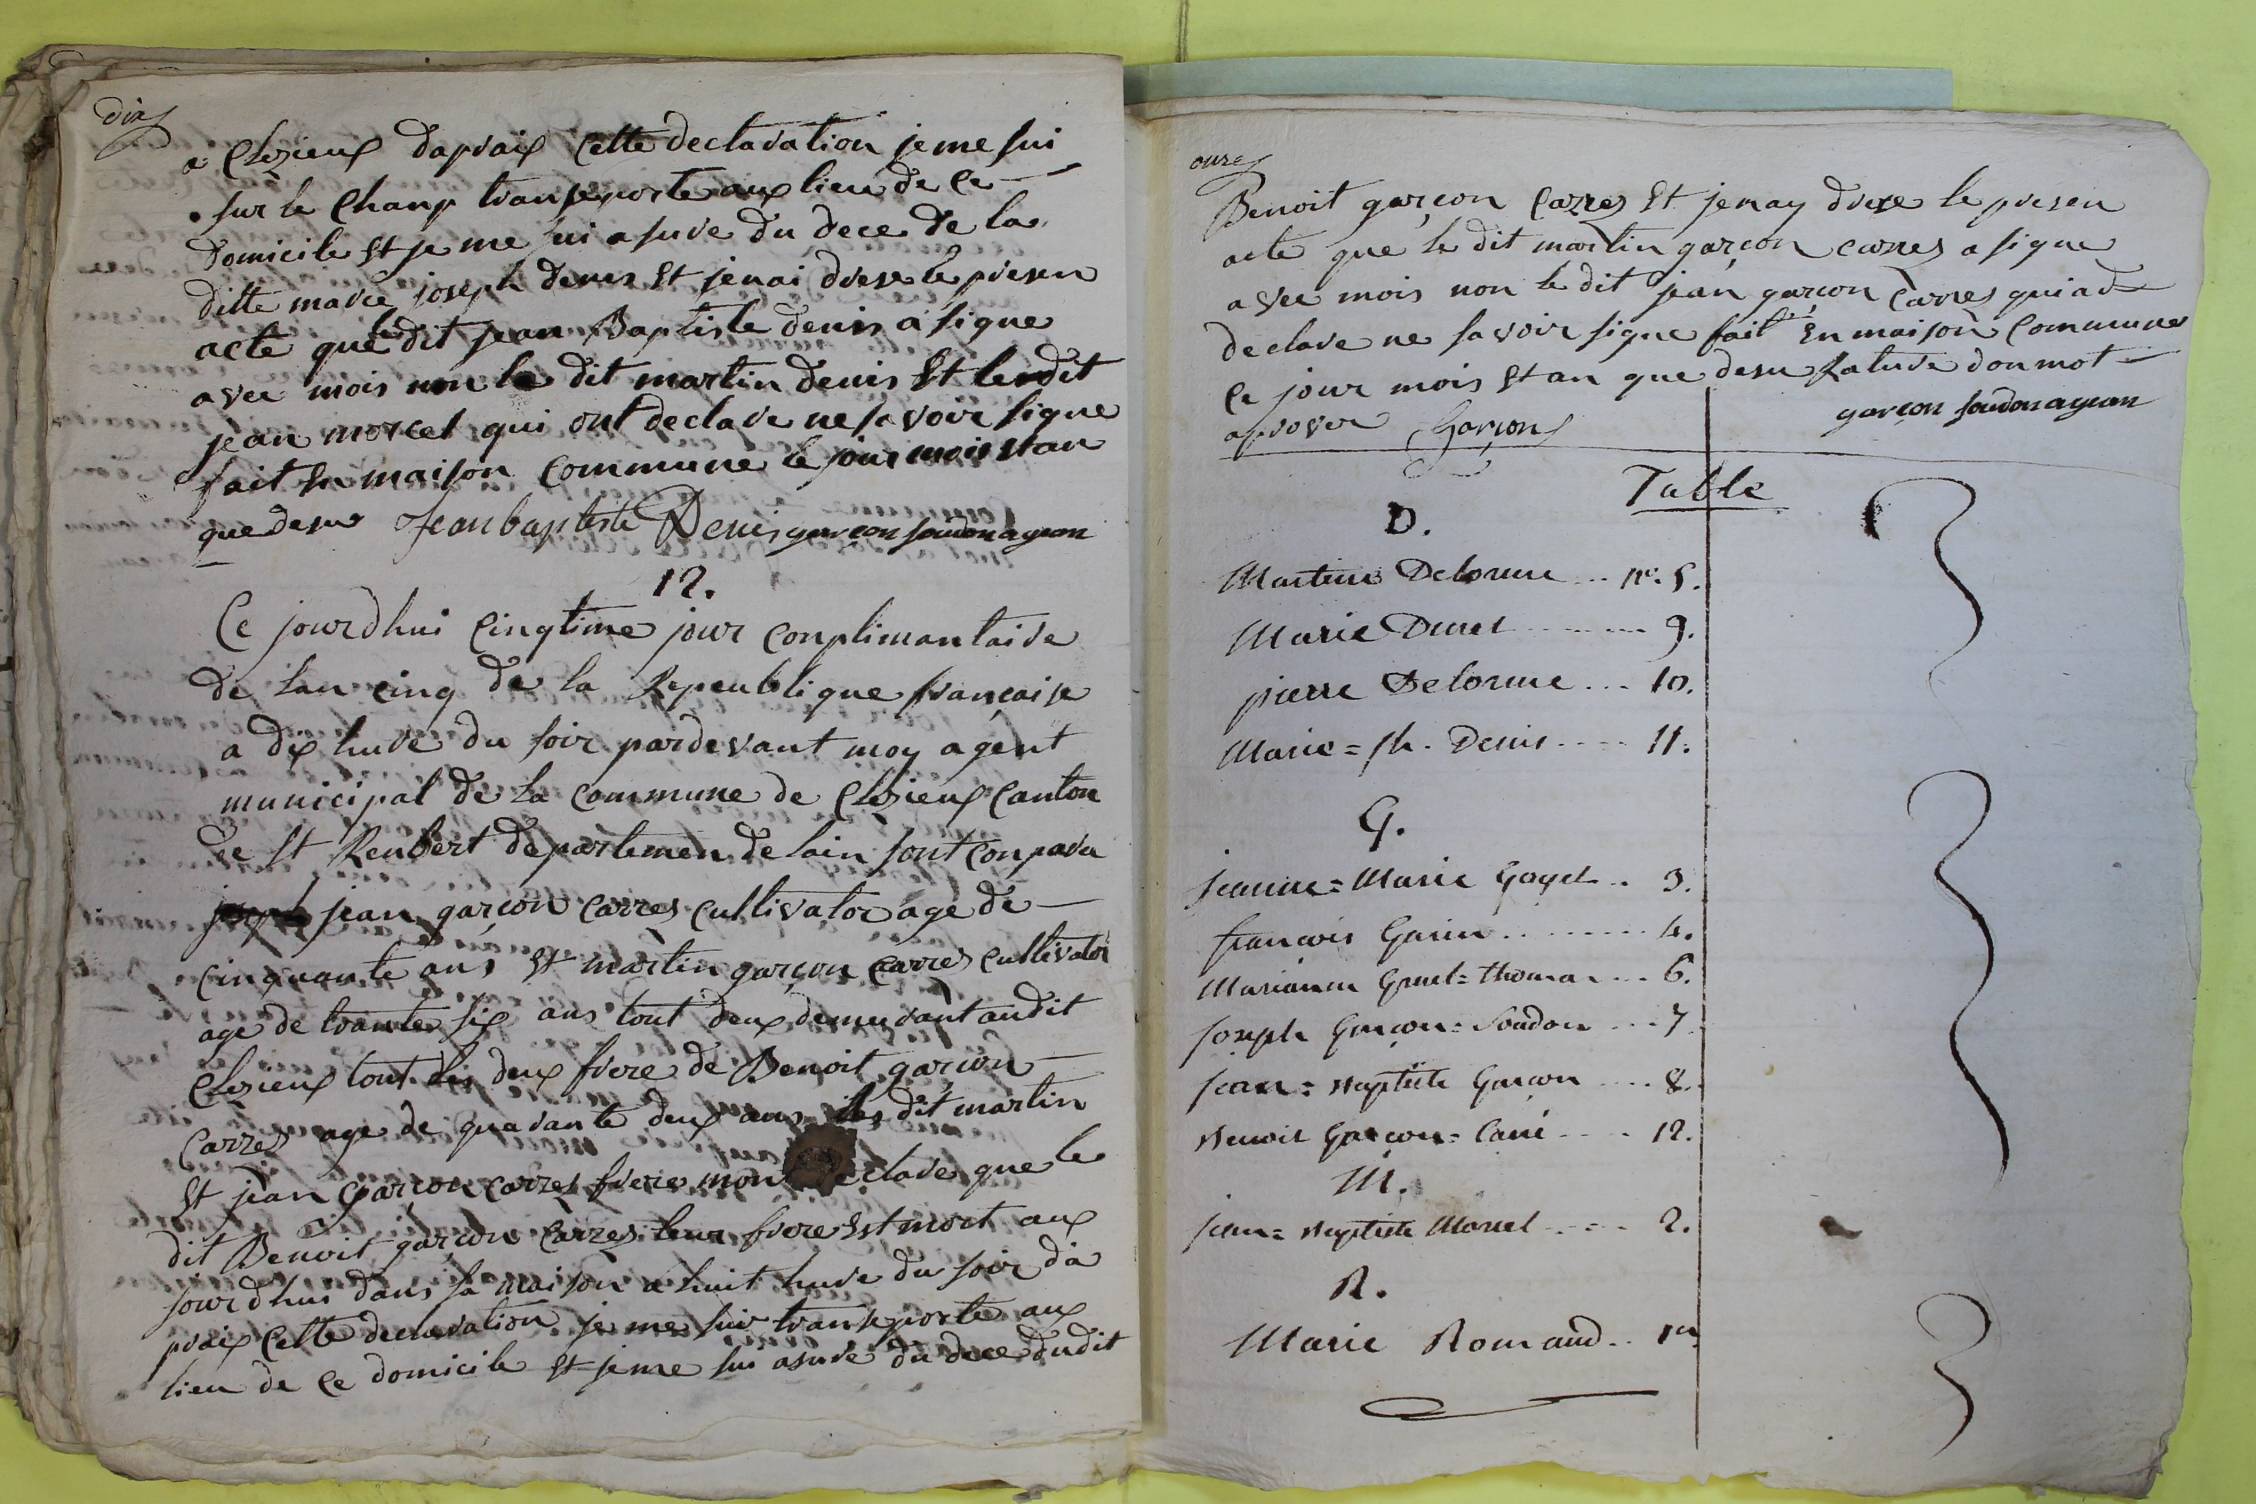 dix
a Clezieux dapraix Cette declaration je me sui
sur le Champ transeporte aux lieu de Ce
domicile Et je me sui asure du dece de la
ditte marie joseph denis Et jenai drese le presen
acte que le dit jean Baptiste denis a signe
avec mois non le dit martin denis Et le dit
jean morcel qui ont declare ne savoir signe
fait En maison Commune le jour mois Et an
que desu Jean baptiste Denis garçon soudon agean
12.
Ce jourdhui Cinqtime jour Conplimantaire
de lan cinq de la Repeublique française
a dix hure du soir pardevant moy agent
municipal de La Commune de Clezieux Canton
de St Renbert departemen de lain sont Conparu
jean garçon Carres Cultivator age de
Cinquante ans Et martin garçon Carres Cultivator
age de trante six ans tout deux demeurant audit
Clezieux tout les deux frere de Benoit garçon
Carres age de quarante deux ans les dit martin
Et jean garçon Carres frere mont declare que le
dit Benoit garçon Carres leur frere Est mort aux
jourdhui dans sa maison a huit hure du soir da
praix Cette declaration je me sui transeporte aux
lieu de Ce domicile Et je me sui asure du dece dudit
onze
Benoit garçon Carres Et jenay drese le presen
acte que le dit martin garçon carres a signe
avec mois non le dit jean garçon Carres qui a
declare ne savoir signe fait En maison Commune
Ce jour mois Et an que desu Rature don mot
aprover Garçon garçon soudon agean
Table
D.
Martine Delorme ... No. 5.
Marie Duret ........ 9.
pierre Delorme ... 10.
Marie = jh. Denis .... 11.
G.
jeanne = Marie Goyet .. 3.
françois Garin ........ 4.
Marianne Gruel = thomas ... 6.
Joseph Garçon = Soudon ... 7
jean = Baptiste Garçon .... 8.
Benoit Garçon = Carré .... 12.
M.
jean = Baptiste Morcel .... 2.
R.
Marie Romand .. 1er.